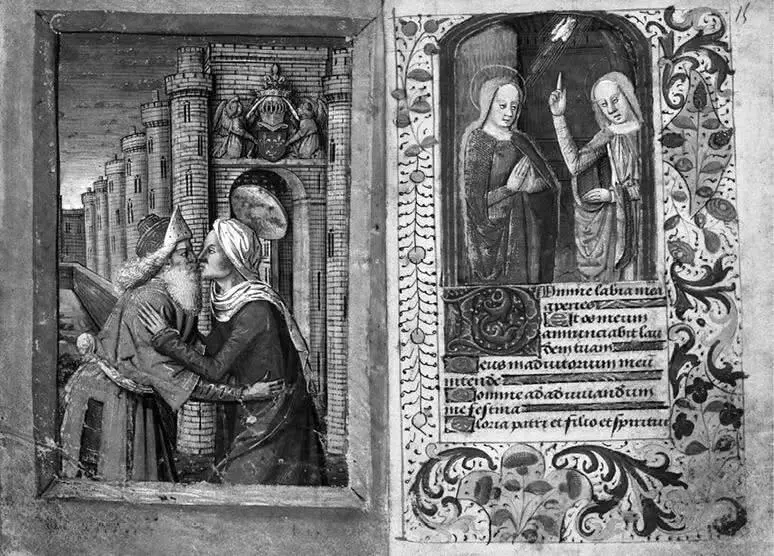 Domine labia mea
aperies
Et os meum
annunciabit lau
dem tuam
Deus in adiutorium meu
intende
Domine ad adiuuandum
me festina
Gloria patri et filio et spiritui